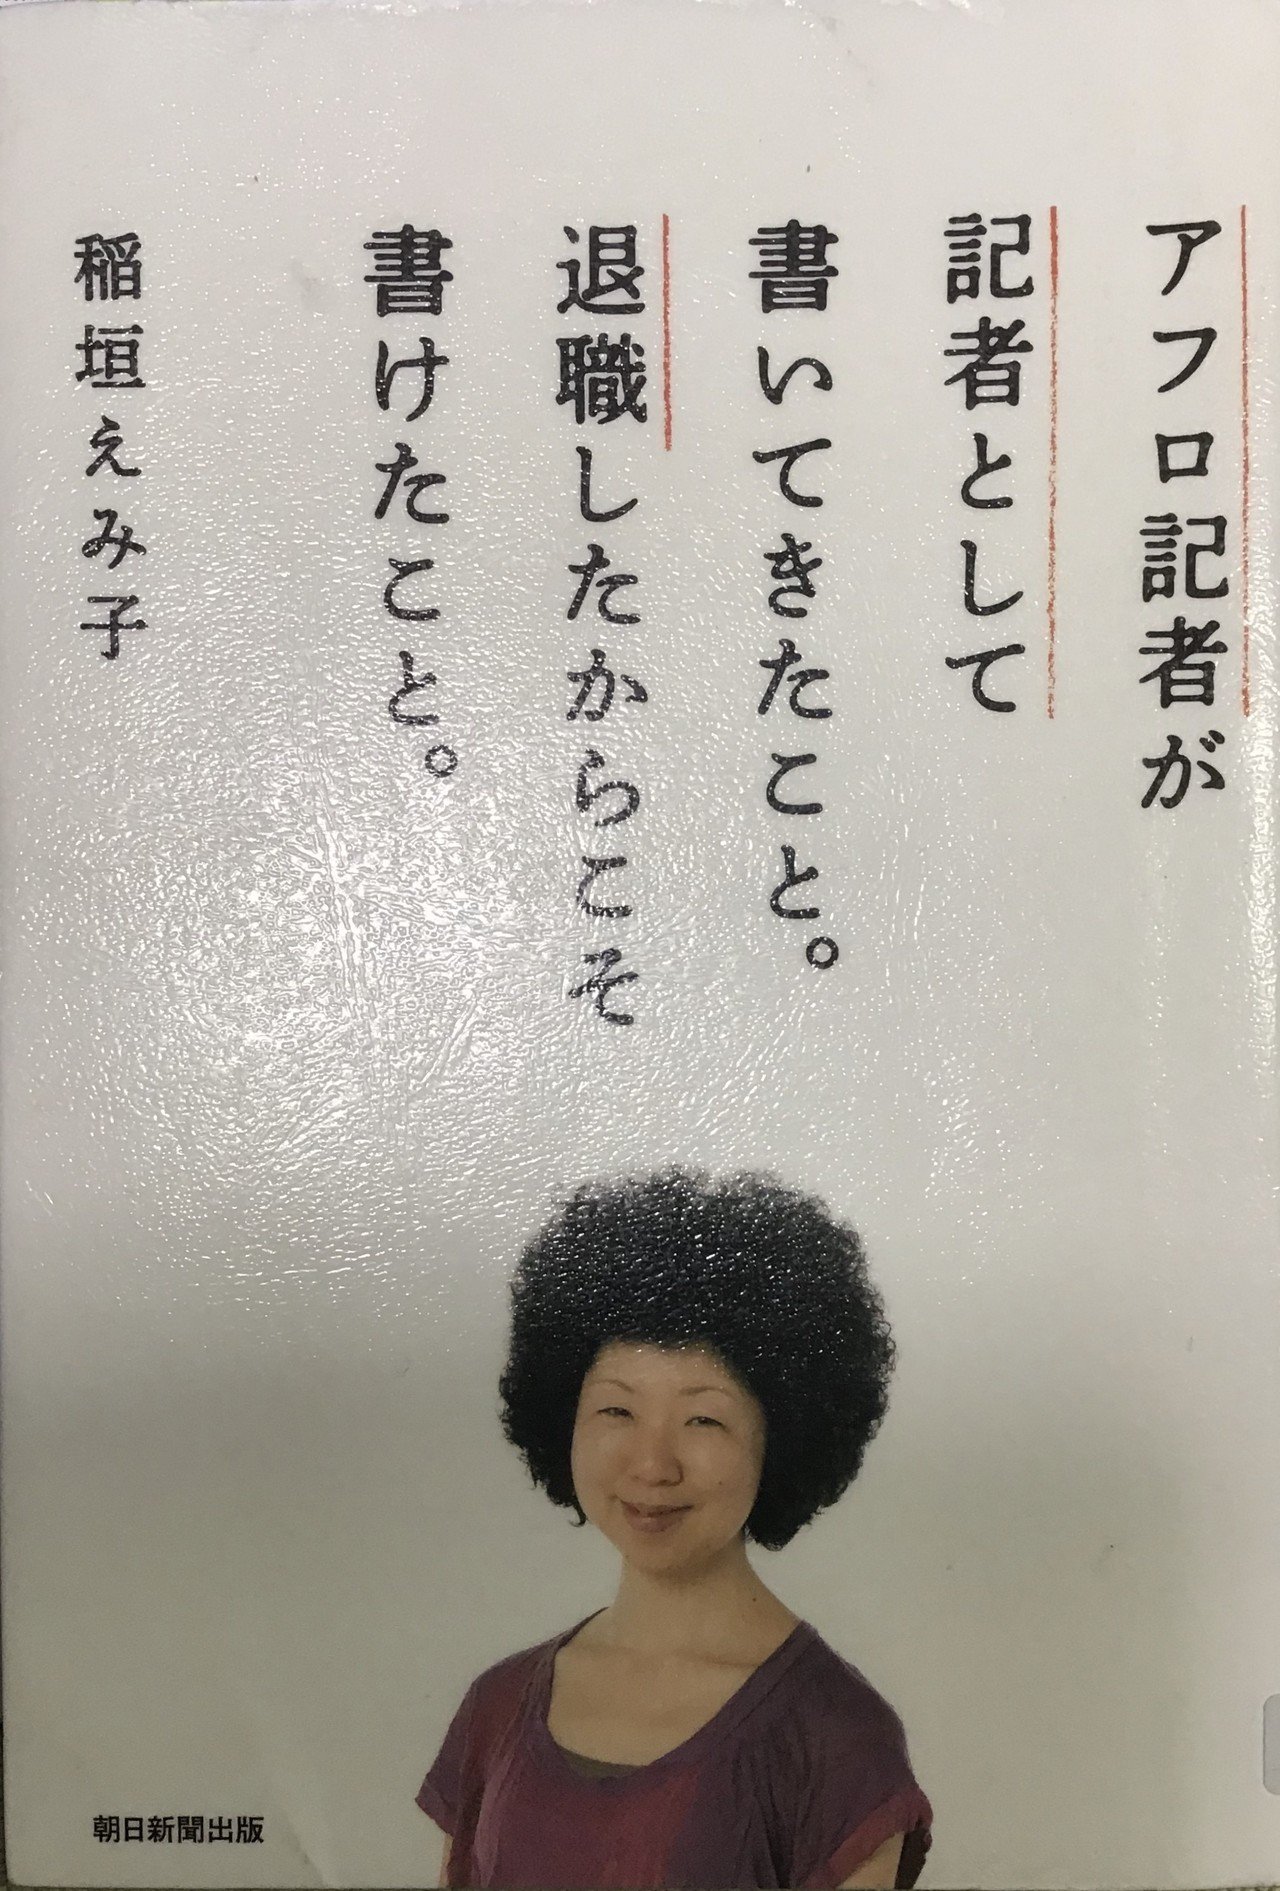 アフロ記者が
記者として
書いてきたこと。
退職したからこそ
書けたこと。
稲垣えみ子
朝日新聞出版